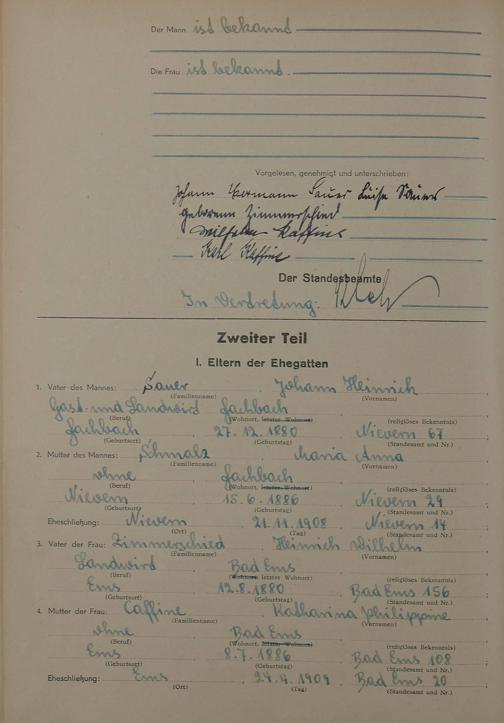 Der Mann ist bekannt
Die Frau ist bekannt.
Vorgelesen, genehmigt und unterschrieben:
Johann Hermann Sauer Luise Sauer
geborene Zimmerschied
Wilhelm Kaffine
Karl Kaffine
Der Standesbeamte
In Vertretung:
Zweiter Teil
I. Eltern der Ehegatten
1. Vater des Mannes: Sauer Johann Heinrich
(Familienname) (Vornamen)
Gast- und Landwird Fachbach
(Beruf) (Wohnort, letzter Wohnort) (religiöses Bekenntnis)
Fachbach 27.12.1880 Nievern 67
(Geburtsort) (Geburtstag) (Standesamt und Nr.)
2. Mutter des Mannes: Schmalz Maria Anna
(Familienname) (Vornamen)
ohne Fachbach
(Beruf) (Wohnort, letzter Wohnort) (religiöses Bekenntnis)
Nievern 15.6.1886 Nievern 29
(Geburtsort) (Geburtstag) (Standesamt und Nr.)
Eheschließung: Nievern 21.11.1908 Nievern 14
(Ort) (Tag) (Standesamt und Nr.)
3. Vater der Frau: Zimmerschied Heinrich Wilhelm
(Familienname) (Vornamen)
Landwird Bad Ems
(Beruf) (Wohnort, letzter Wohnort) (religiöses Bekenntnis)
Ems 12.8.1880 Bad Ems 156
(Geburtsort) (Geburtstag) (Standesamt und Nr.)
4. Mutter der Frau: Caffine Katharina Philippine
(Familienname) (Vornamen)
ohne Bad Ems
(Beruf) (Wohnort, letzter Wohnort) (religiöses Bekenntnis)
Ems 8.7.1886 Bad Ems 108
(Geburtsort) (Geburtstag) (Standesamt und Nr.)
Eheschließung: Ems 24.4.1909 Bad Ems 20
(Ort) (Tag) (Standesamt und Nr.)